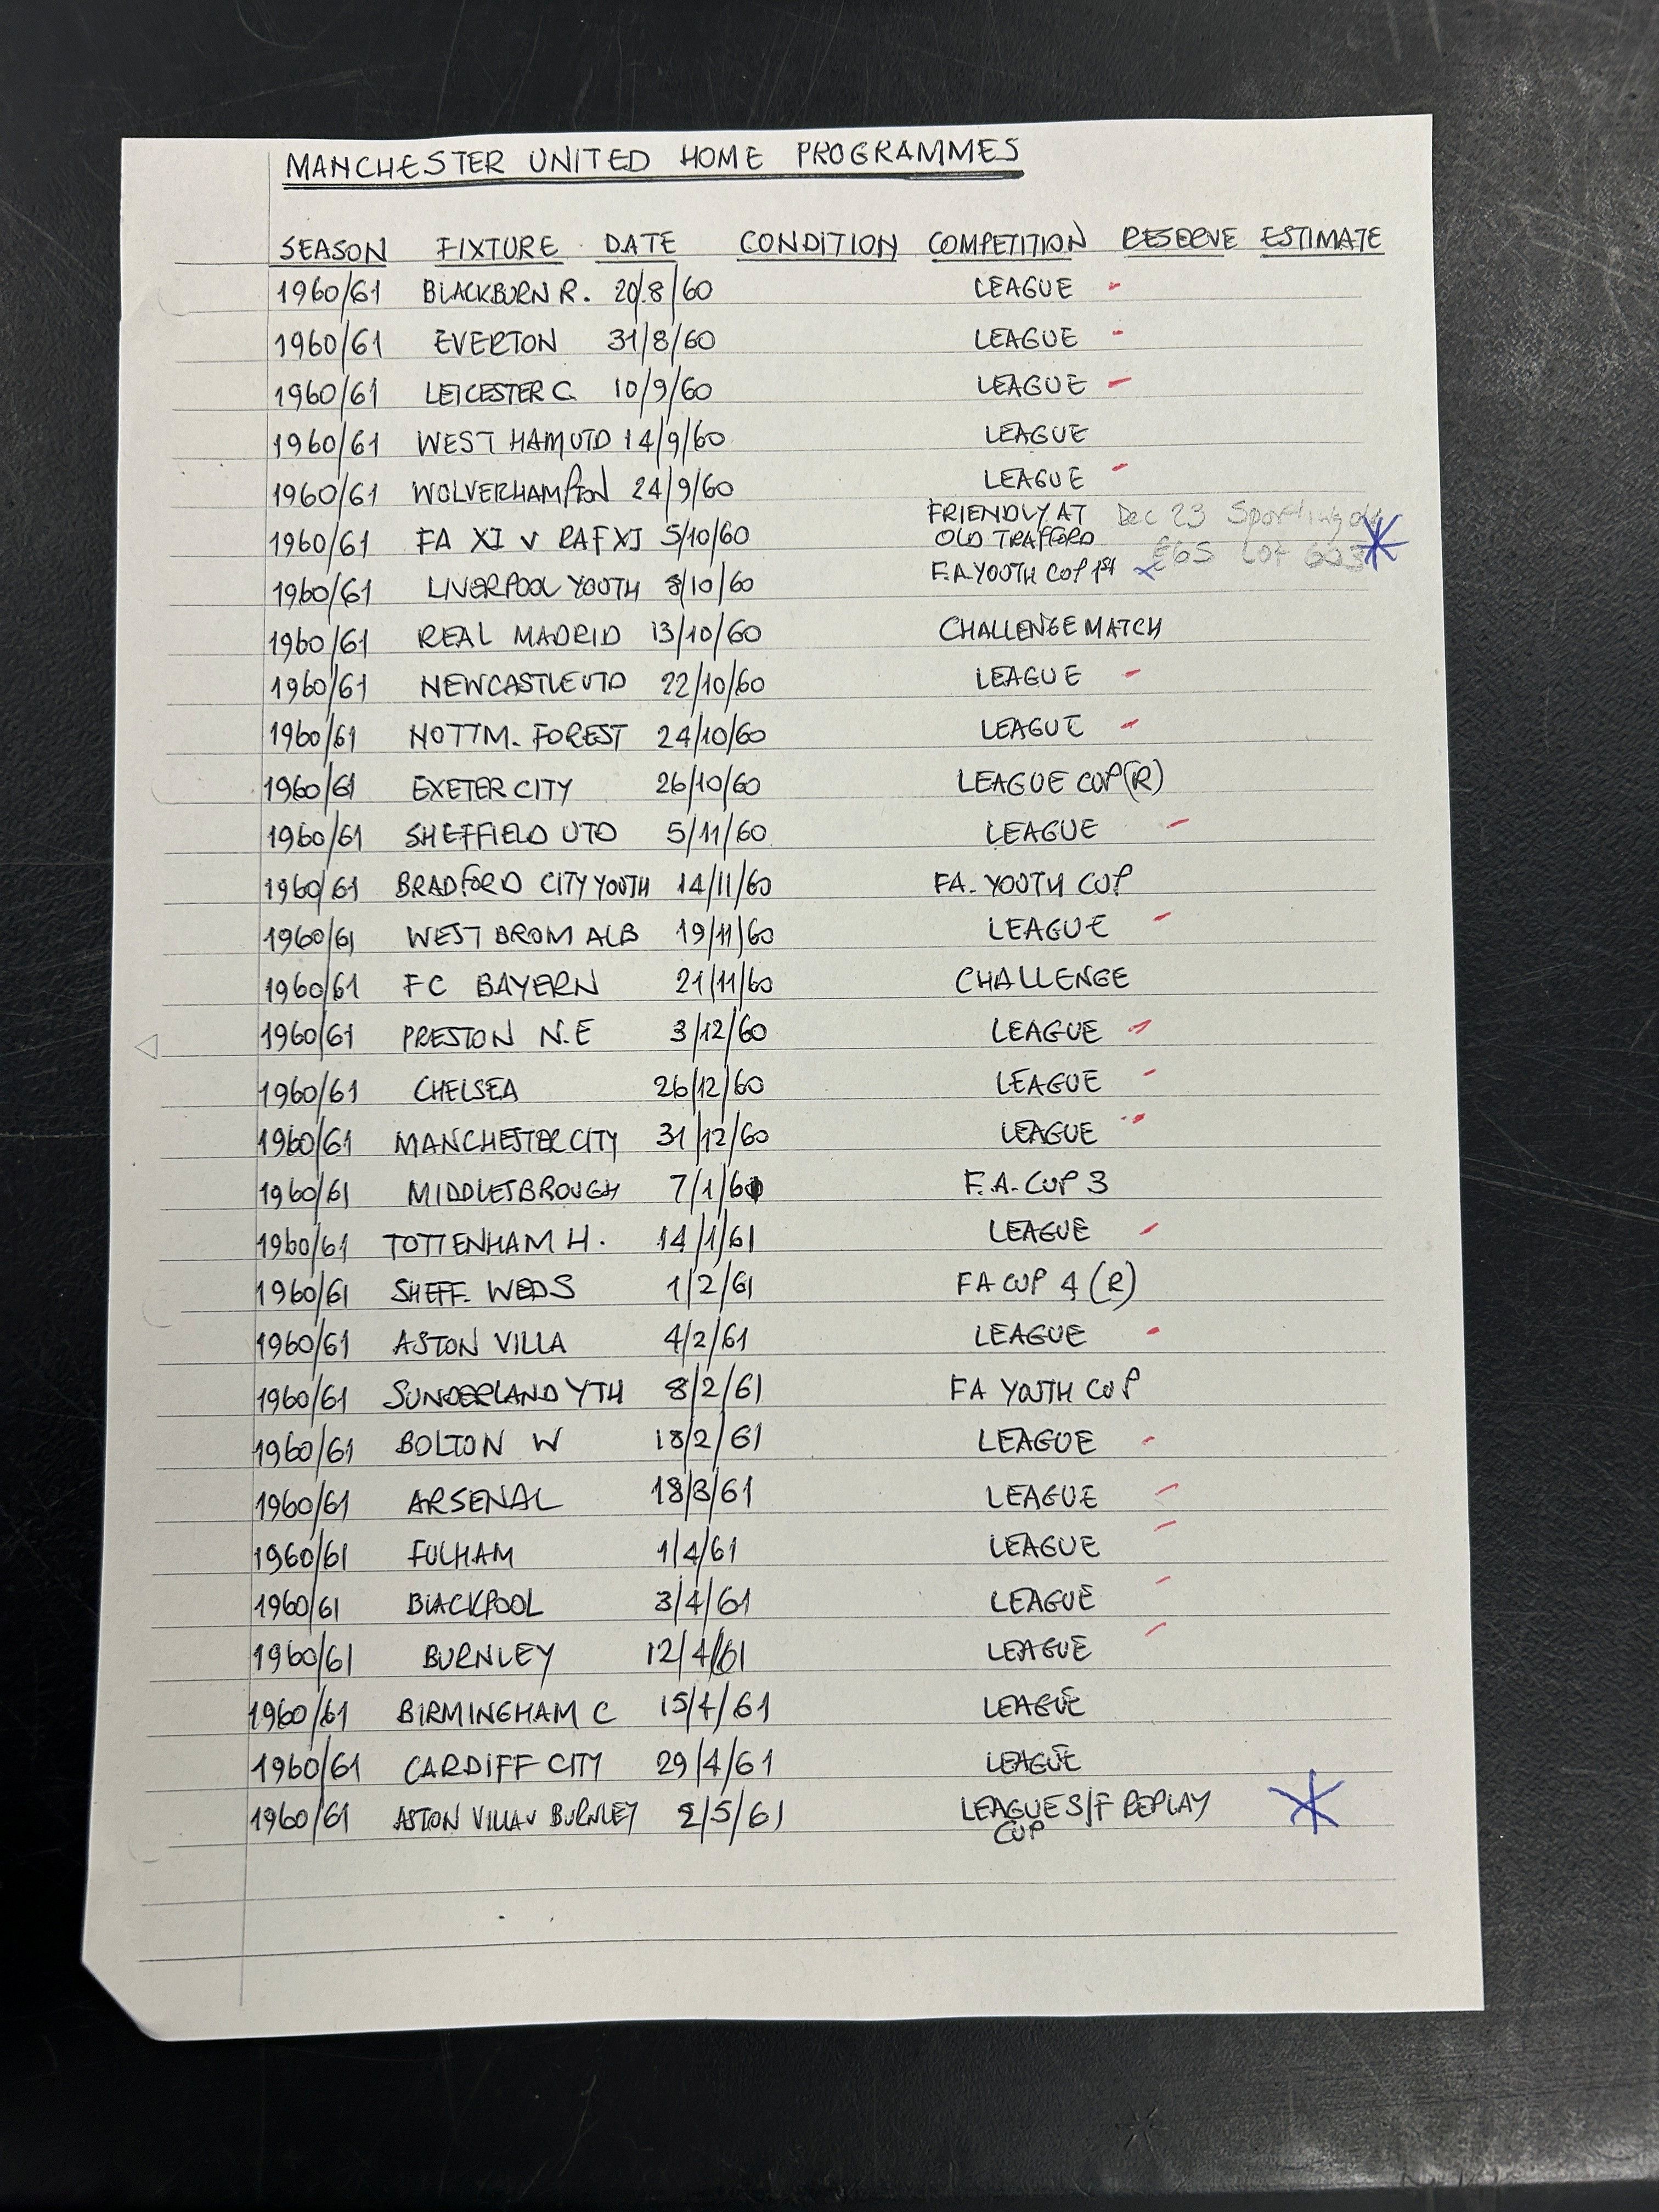 MANCHESTER UNITED HOME PROGRAMMES
SEASON FIXTURE DATE CONDITION COMPETITION RESERVE ESTIMATE
1960/61 BLACKBURN R. 20/8/60 LEAGUE -
1960/61 EVERTON 31/8/60 LEAGUE -
1960/61 LEICESTER C. 10/9/60 LEAGUE -
1960/61 WEST HAM UTD 14/9/60 LEAGUE
1960/61 WOLVERHAMPTON 24/9/60 LEAGUE -
1960/61 FA XI v RAF XI 5/10/60 FRIENDLY AT OLD TRAFFORD Dec 23 Sporting £65 Lot
1960/61 LIVERPOOL YOUTH 8/10/60 F.A YOUTH CUP 1st
1960/61 REAL MADRID 13/10/60 CHALLENGE MATCH
1960/61 NEWCASTLE UTD 22/10/60 LEAGUE -
1960/61 NOTTM. FOREST 24/10/60 LEAGUE -
1960/61 EXETER CITY 26/10/60 LEAGUE CUP (R)
1960/61 SHEFFIELD UTD 5/11/60 LEAGUE -
1960/61 BRADFORD CITY YOUTH 14/11/60 FA. YOUTH CUP
1960/61 WEST BROM ALB 19/11/60 LEAGUE -
1960/61 FC BAYERN 21/11/60 CHALLENGE
1960/61 PRESTON N.E 3/12/60 LEAGUE -
1960/61 CHELSEA 26/12/60 LEAGUE -
1960/61 MANCHESTER CITY 31/12/60 LEAGUE -
1960/61 MIDDLESBROUGH 7/1/61 F.A. CUP 3
1960/61 TOTTENHAM H. 14/1/61 LEAGUE -
1960/61 SHEFF. WEDS 1/2/61 FA CUP 4 (R)
1960/61 ASTON VILLA 4/2/61 LEAGUE -
1960/61 SUNDERLAND YTH 8/2/61 FA YOUTH CUP
1960/61 BOLTON W 18/2/61 LEAGUE -
1960/61 ARSENAL 18/3/61 LEAGUE -
1960/61 FULHAM 1/4/61 LEAGUE -
1960/61 BLACKPOOL 3/4/61 LEAGUE -
1960/61 BURNLEY 12/4/61 LEAGUE -
1960/61 BIRMINGHAM C 15/4/61 LEAGUE
1960/61 CARDIFF CITY 29/4/61 LEAGUE
1960/61 ASTON VILLA v BURNLEY 2/5/61 LEAGUE CUP S/F REPLAY